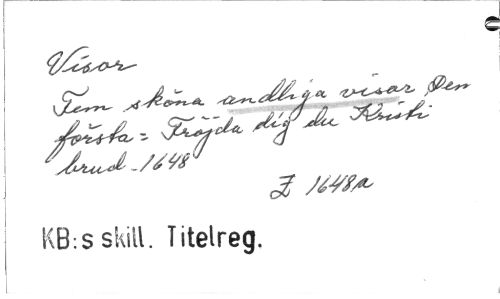 Visor
Fem sköna andliga visor, Den
första = Fröjda dig du Kristi
brud - 1648
Z 1648a
KB:s skill. Titelreg.